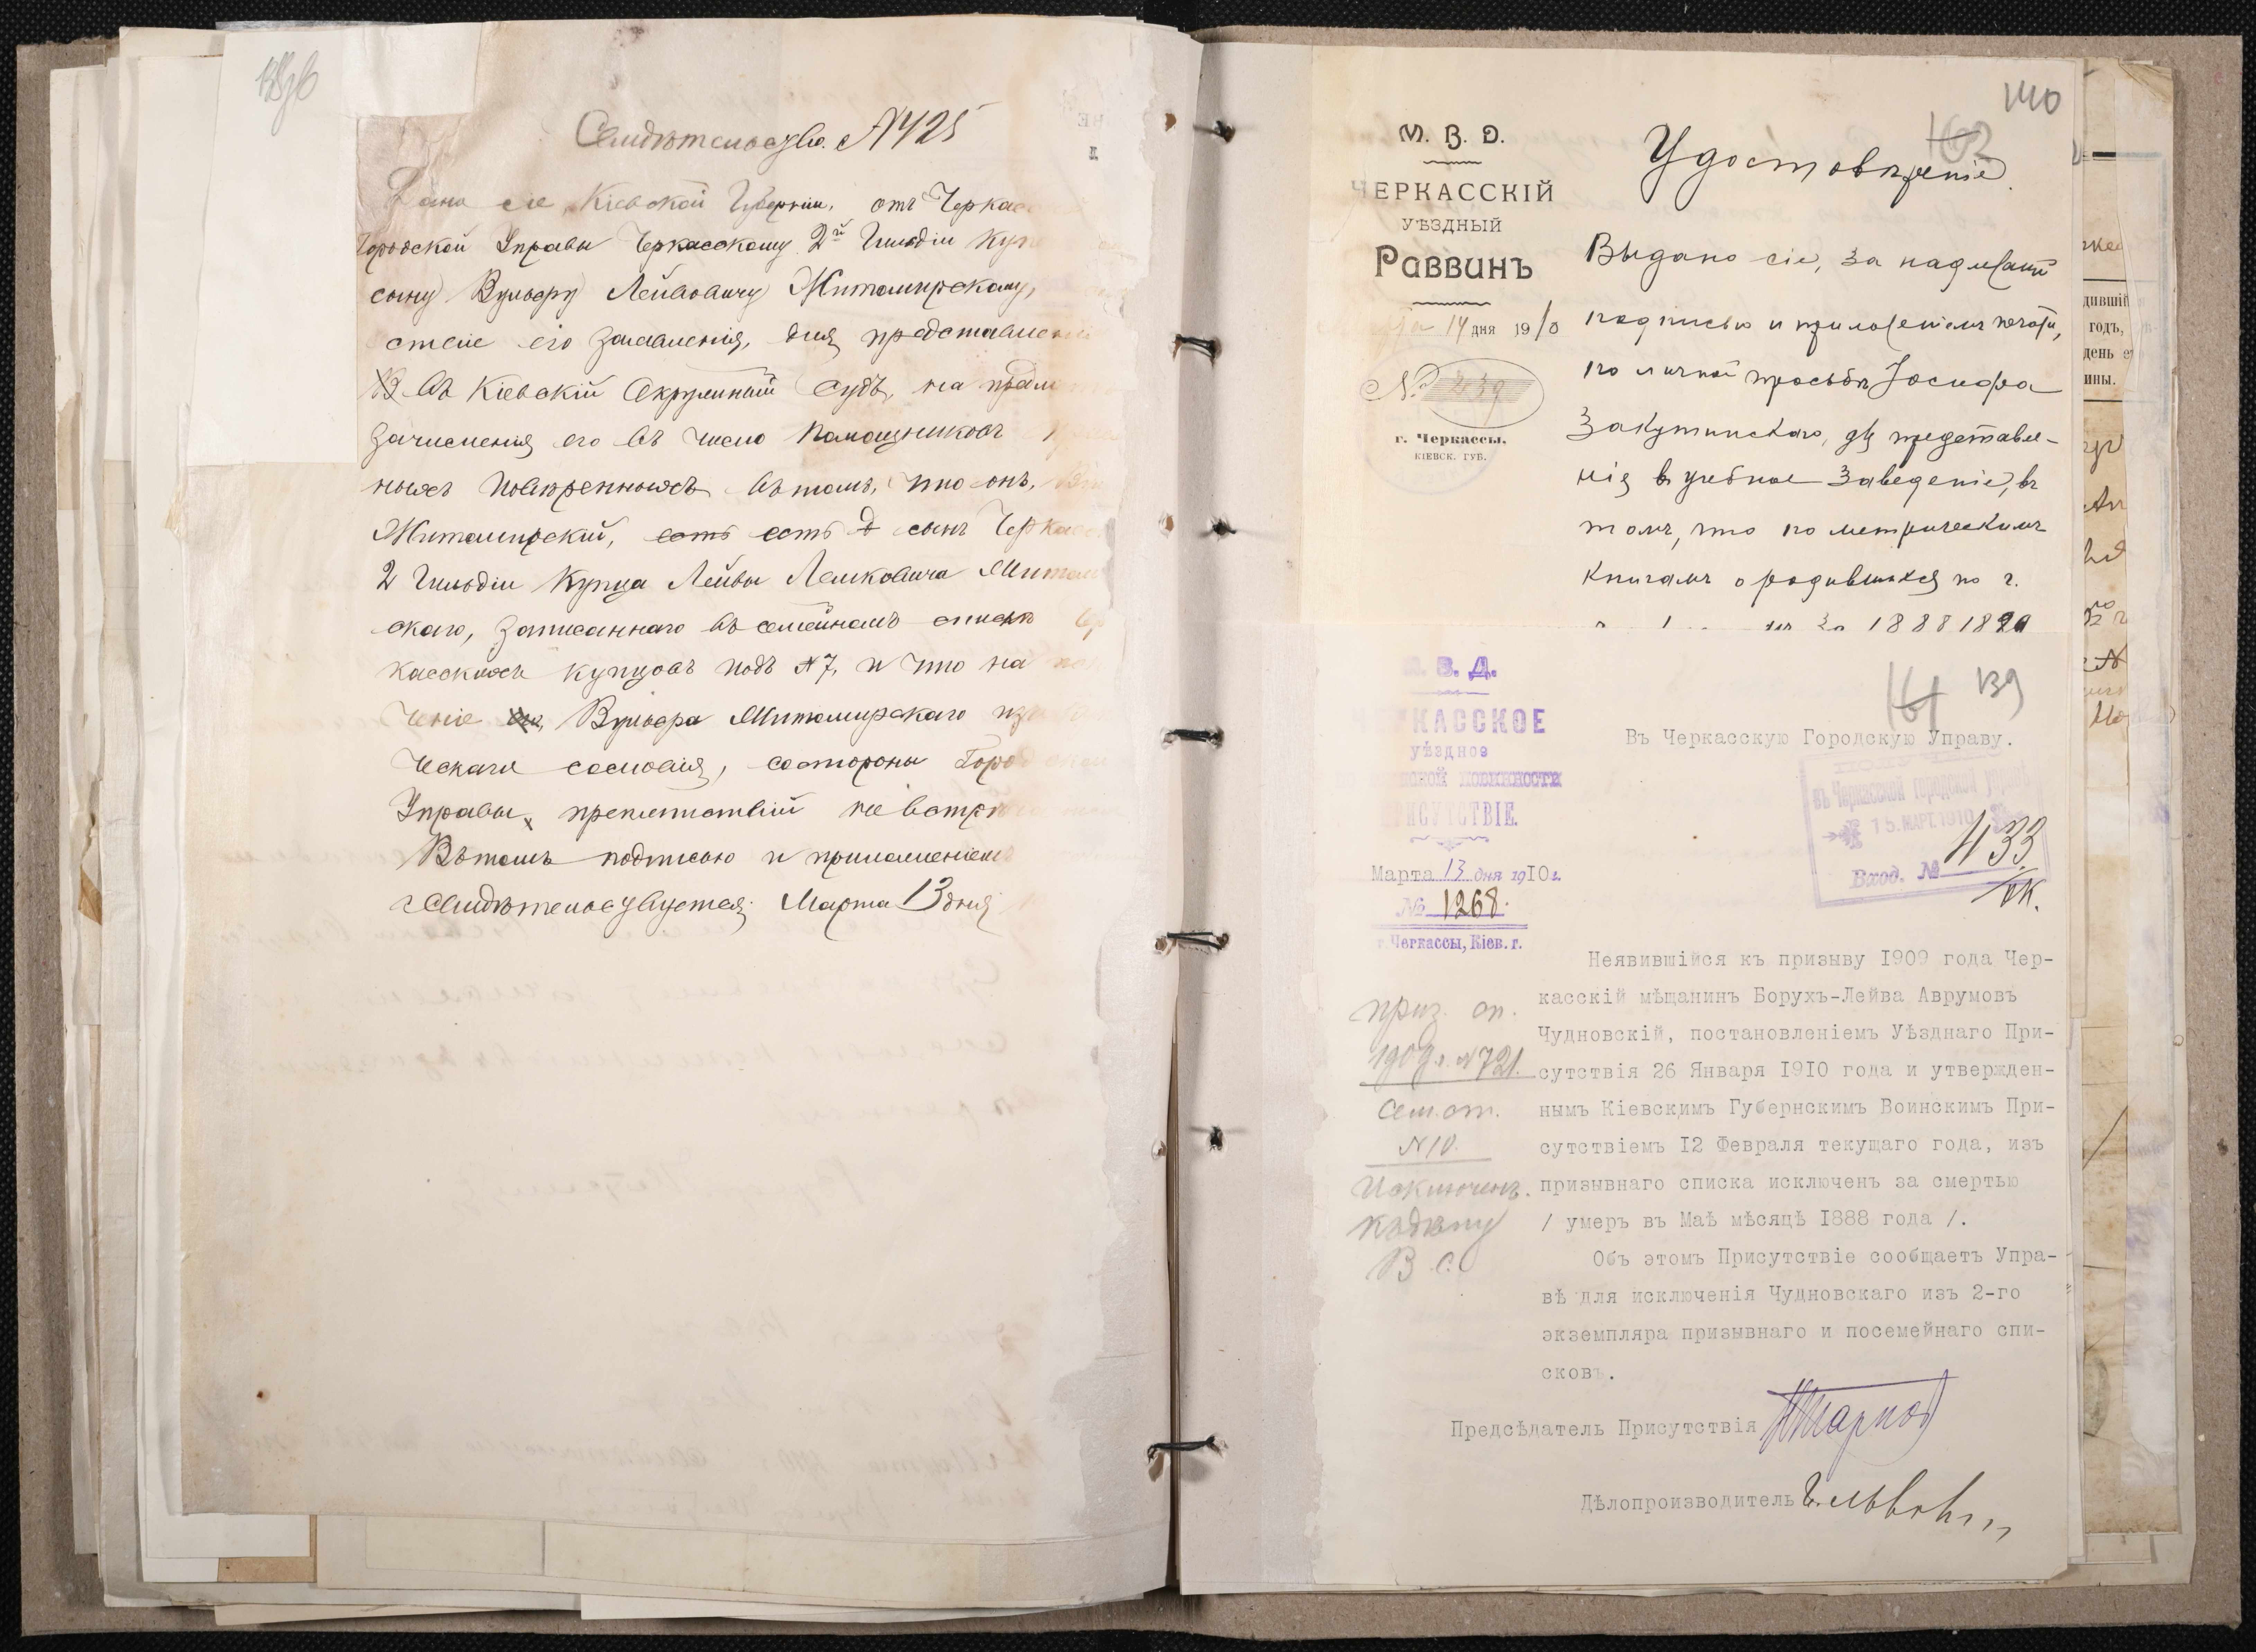 Свидѣтельство. №425
Дано сіе, Кіевской Губерніи, отъ Черкас
Городской Управы Черкасскому 2й Гильдіи Куп
сыну Вульфу Лейбовичу Житомирскому,
ствіе его заявленія, для представленія
въ Кіевскій Окружный Судъ, на предм
зачисленія его въ число помощниковъ
ныхъ повѣренныхъ въ томъ, что онъ,
Житомирскій, есть есть сынъ Черкас
2 Гильдіи Купца Лейбы Лемковича Житом
скаго, записаннаго въ семейномъ спискѣ Чер
касскихъ купцовъ подъ №7, и что на
ченіе Вульфа Житомирскаго из
ческаго сословія, со стороны Город
Управы, препятствій не встрѣ
Въ томъ подписью и приложеніемъ
свидѣтельствуется. Марта 13 дня
140
163
М. В. Д.
ЧЕРКАССКІЙ
УѢЗДНЫЙ
РАВВИНЪ
14 дня 1910
№ 239
г. Черкассы.
КІЕВСК. ГУБ.
Удостовѣреніе.
Выдано сіе, за надлежащей
подписью и приложеніемъ печати,
по личной просьбѣ Іосифа
Закутинскаго, для представле-
нія въ учебное заведеніе, въ
томъ, что по метрическимъ
книгамъ о родившихся по г.
за 1888 1890
161 139
В. Д.
КАССКОЕ
уѣздное
ской повинности
РИСУТСТВІЕ.
Марта 13 дня 1910 г.
№ 1268.
г. Черкассы, Кіев. г.
Въ Черкасскую Городскую Управу.
въ Черкасской Городской Управ
15. МАРТ. 1910
Вход. № 433
Неявившійся къ призыву 1909 года Чер-
касскій мѣщанинъ Борухъ-Лейва Аврумовъ
Чудновскій, постановленіемъ Уѣзднаго При-
сутствія 26 Января 1910 года и утвержден-
нымъ Кіевскимъ Губернскимъ Воинскимъ При-
сутствіемъ 12 Февраля текущаго года, изъ
призывнаго списка исключенъ за смертью
/ умеръ въ Маѣ мѣсяцѣ 1888 года /.
Объ этомъ Присутствіе сообщаетъ Упра-
вѣ для исключенія Чудновскаго изъ 2-го
экземпляра призывнаго и посемейнаго спи-
сковъ.
приз. сп.
1909 г. №721.
Сем. сп.
№10.
Исключенъ.
Къ дѣлу
В. С.
Предсѣдатель Присутствія
Дѣлопроизводитель